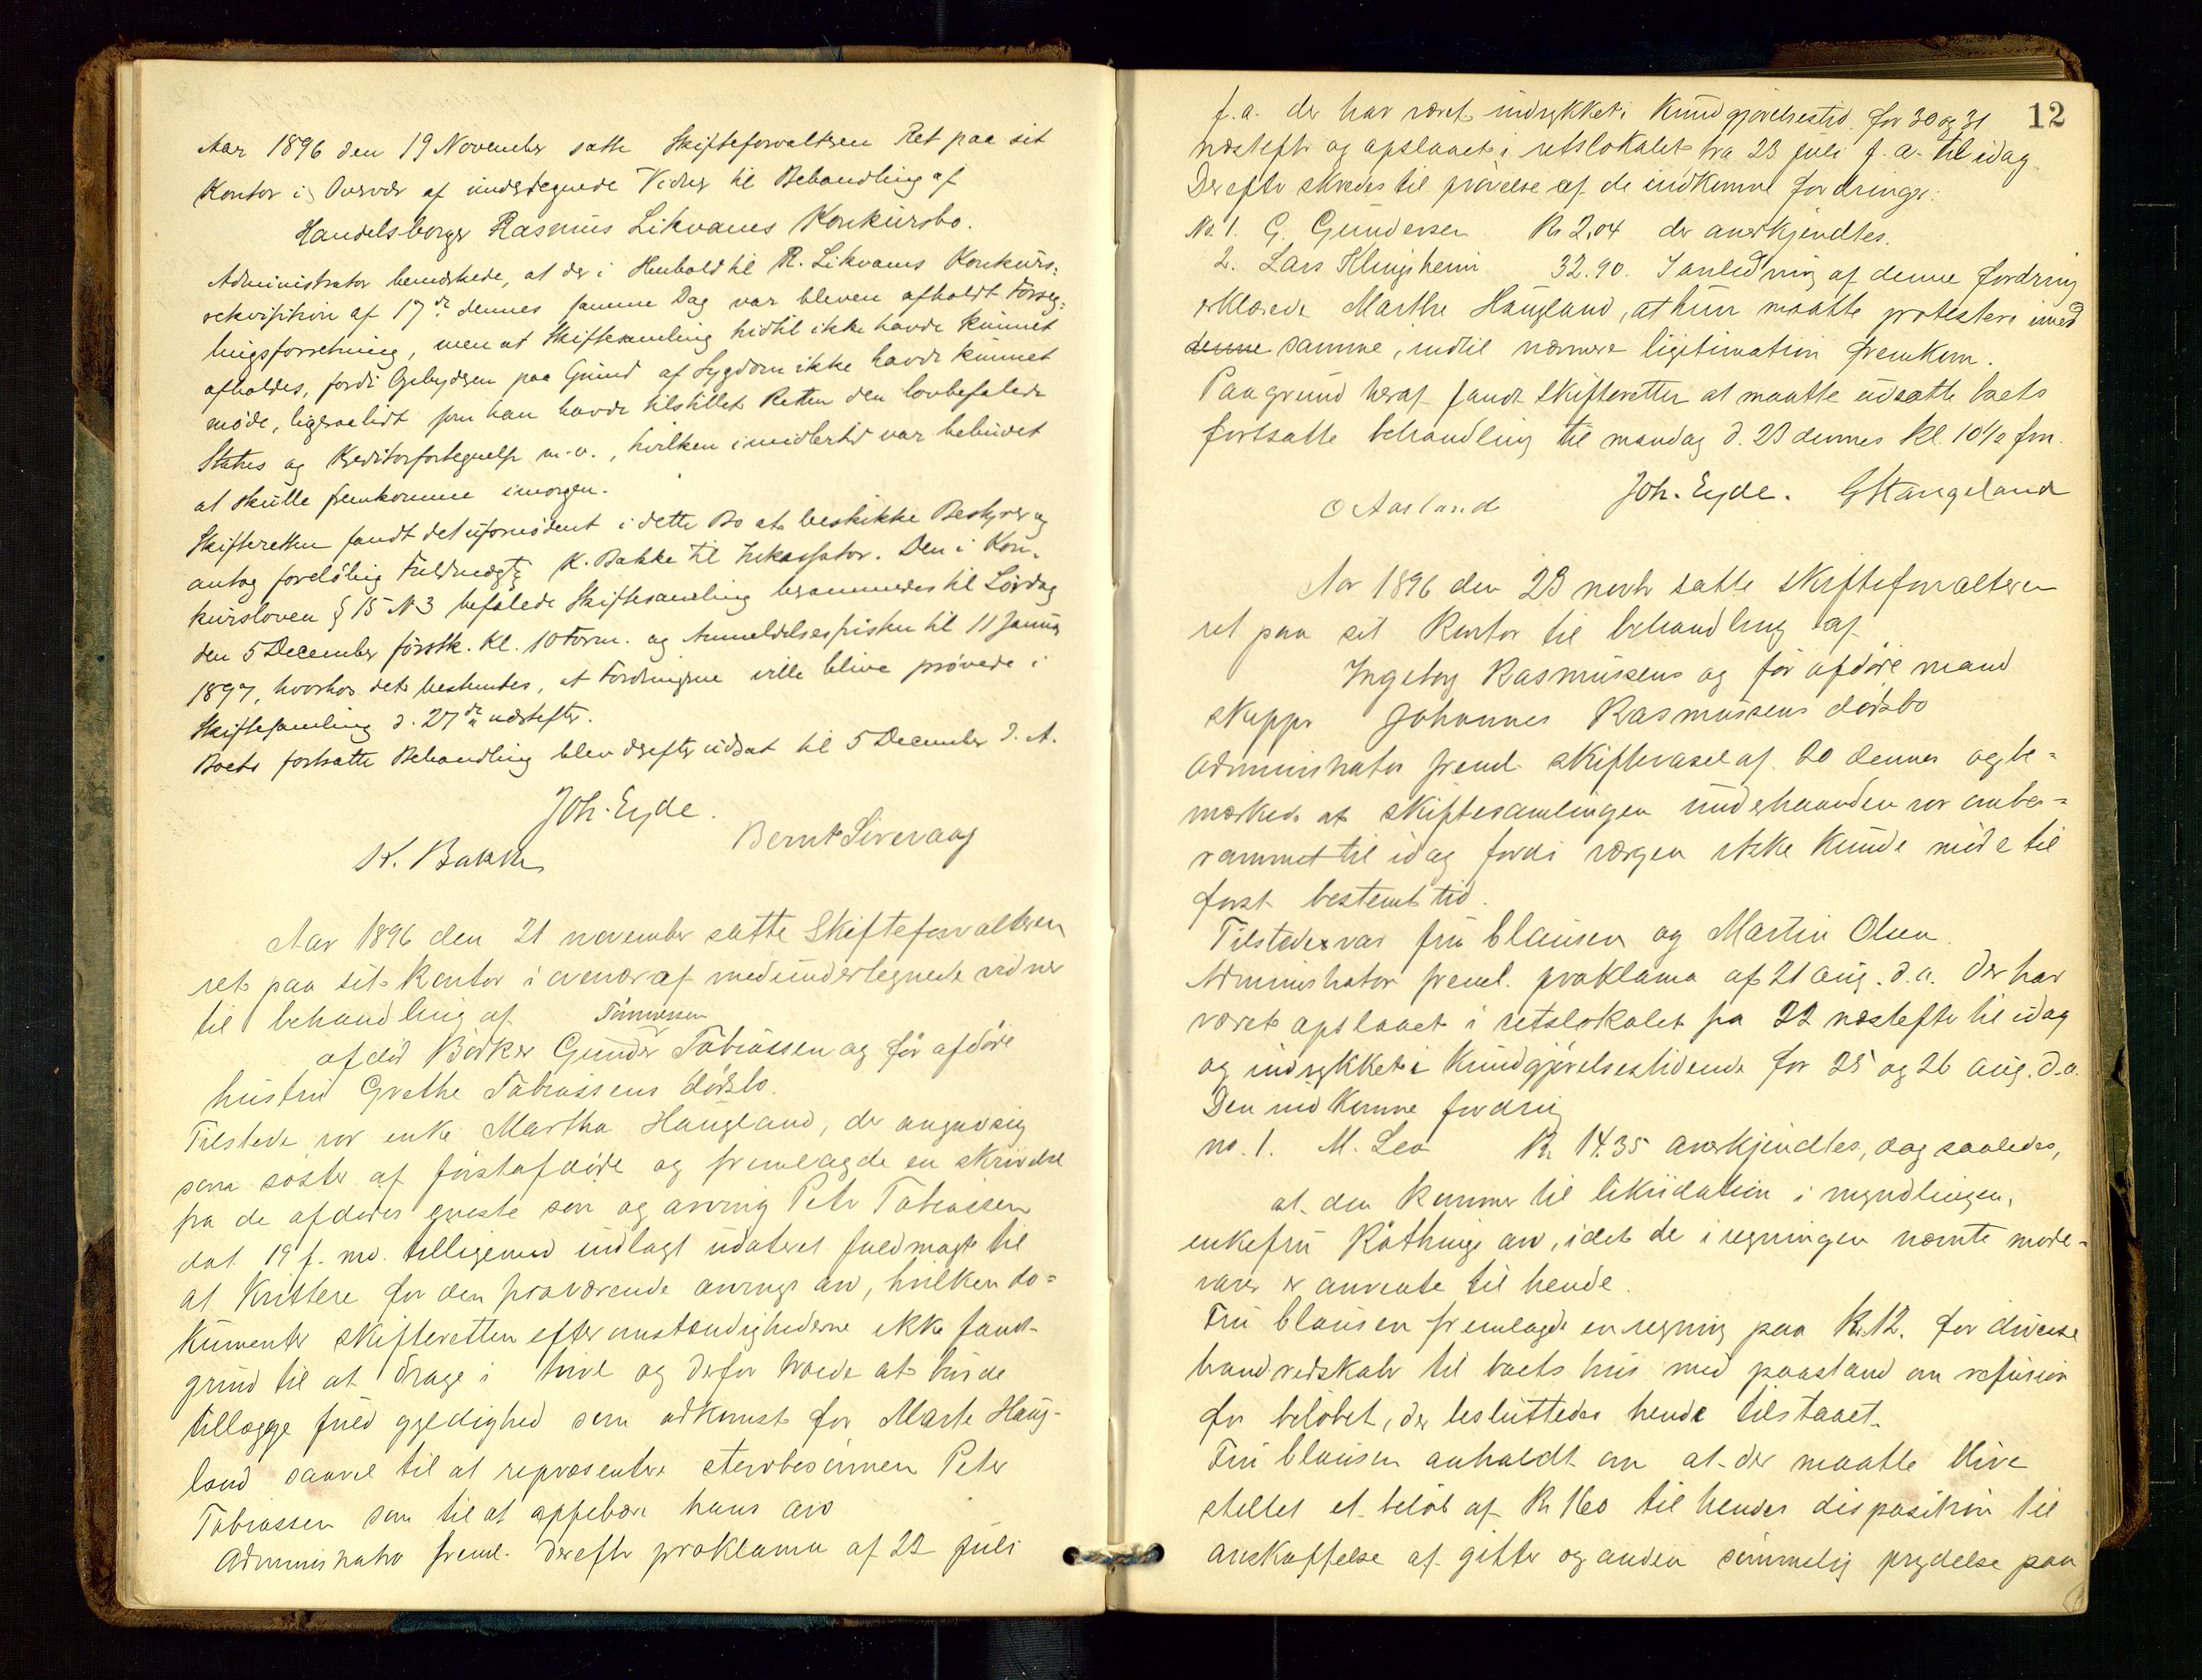 Aar 1896 den 19 November satte Skifteforvalteren Ret paa sit
Kontor i Overvær af undertegnede Vidner til Behandling af
Handelsborger Rasmus Likvams Konkursbo.
Administrator bemærkede, at der i Henhold til R. Likvams Konkurs-
rekvisition af 17de dennes samme Dag var bleven afholdt Forseg-
lingsforretning, men at Skiftesamling hidtil ikke havde kunnet
afholdes, fordi Opbyderen paa Grund af Sygdom ikke havde kunnet
møde, ligesaalidt som han havde tilstillet Retten den lovbefalede
Status og Kreditorfortegnelse m.v., hvilken imidlertid var bebudet
at skulle fremkomme imorgen.
Skifteretten fandt det ufornødent i dette Bo at beskikke Bestyrer og
antog foreløbig Fuldmægtg K. Bakke til Inkassator. Den i Kon-
kursloven § 15 N 3 befalede Skiftesamling berammedes til Lørdag
den 5 December førstk. Kl. 10 Form. og Anmeldelsesfristen til 11 Januar
1897, hvorhos det bestemtes, at Fordringerne ville blive prøvede i
Skiftesamling d. 27de næstefter.
Boets fortsatte Behandling blev derefter udsat til 5 December d. A.
Joh. Eyde.
K. Bakke Bernt Liveraag
Aar 1896 den 21 november satte Skifteforvalteren
ret paa sit kontor i overvær af medundertegnede vidner
til behandling af Tønnessen
afdød Bødker Gunder Tobiassen og før afdøde
hustru Grethe Tobiassens dødsbo.
Tilstede var enke Martha Haugland, der angav sig
som søster af førstafdøde og fremlagde en skrivelse
fra de afdødes eneste søn og arving Peter Tobiassen
dat 19 f. md. tilligemed indlagt udateret fuldmagt til
at kvittere for den fraværende arvings arv, hvilken do-
kumenter skifteretten efter omstændighederne ikke fandt
grund til at drage i tvivl og derfor troede at burde
tillægge fuld gyldighed som adkomst for Marte Haug-
land saavel til at repræsentere stervbosønnen Peter
Tobiassen som til at oppebære hans arv
Administrator freml. derefter proklama af 22 juli
12
f.a. der har været indrykket i Kundgjørelsestid. for 30 og 31
næstefter og opslaaet i retslokalet fra 23 juli f.a. til idag.
Derefter skredes til prøvelse af de indkomne fordringer:
No. 1. G. Gundersen Kr 2,04 der anerkjendtes.
2. Lars Klingsheim 32.90. I anledning af denne fordring
erklærede Marthe Haugland, at hun maatte protestere imod
denne samme, indtil nærmere ligitimation fremkom.
Paa grund heraf fandt skifteretten at maatte udsætte boets
fortsatte behandling til mandag d. 23 dennes kl. 10½ fm.
O Aarland Joh. Eyde. G Stangeland
Aar 1896 den 23 novb satte skifteforvalteren
ret paa sit kontor til behandling af
Ingeborg Rasmussens og før afdøde mand
skipper Johannes Rasmussens dødsbo
Administrator freml. skiftevarsel af 20 dennes og be-
mærkede at skiftesamlingen underhaanden var ombe-
rammet til idag fordi værgen ikke kunde møde til
først bestemt tid.
Tilstede var fru Clausen og Martin Olsen.
Administrator freml. proklama af 21 aug. d.a. der har
været opslaaet i retslokalet fra 22 næstefter til idag
og indrykket i Kundgjørelsestidende for 25 og 26 aug. d.a.
Den indkomne fordring
no. 1. M. Lea Kr. 14.35 anerkjendtes, dog saaledes,
at den kommer til likvidation i myndlingen,
enkefru Køthings arv, idet de i regningen nævnte mode-
varer er anvendte til hende.
Fru Clausen fremlagde en regning paa Kr. 12. for diverse
brandredskaber til boets hus med paastand om refusion
for beløbet, der besluttedes hende tilstaaet.
Fru Clausen anholdt om at der maatte blive
stillet et beløb af Kr 160 til hendes disposition til
anskaffelse af gitter og anden sømmelig prydelse paa